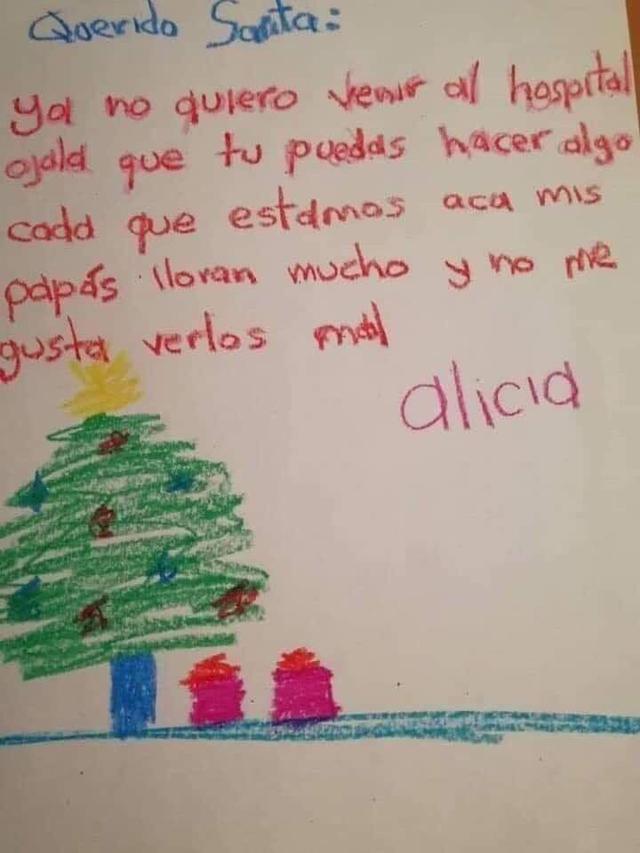 Querido Santa:
ya no quiero venir al hospital
ojala que tu puedas hacer algo
cada que estamos aca mis
papás lloran mucho y no me
gusta verlos mal
alicia